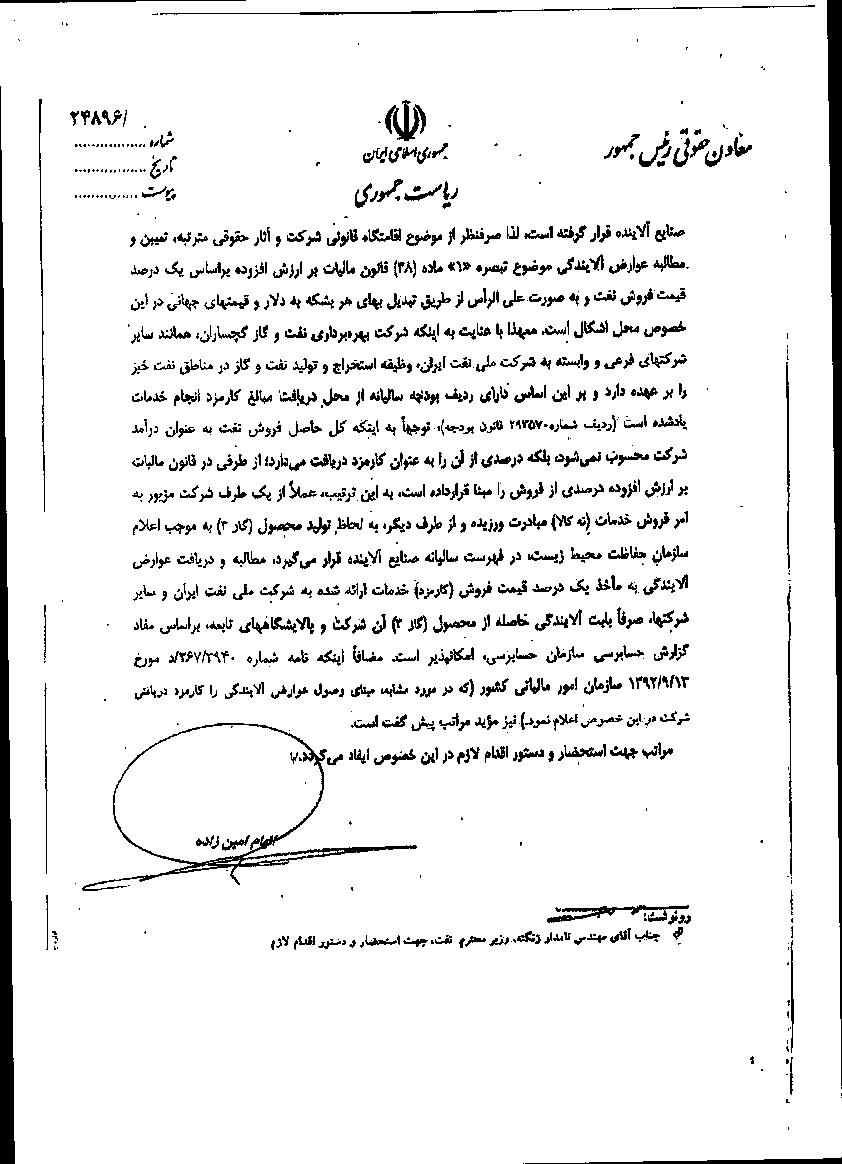 ۲۴۸۹۶/
شماره ..................
تاریخ ..................
پیوست ................
جمهوری اسلامی ایران
ریاست جمهوری
معاون حقوقی رئیس جمهور
صنایع آلاینده قرار گرفته است، لذا صرفنظر از موضوع اقامتگاه قانونی شرکت و آثار حقوقی مترتبه، تعیین و
مطالبه عوارض آلایندگی موضوع تبصره «۱» ماده (۳۸) قانون مالیات بر ارزش افزوده براساس یک درصد
قیمت فروش نفت و به صورت علی الرأس از طریق تبدیل بهای هر بشکه به دلار و قیمتهای جهانی در این
خصوص محل اشکال است. معهذا با عنایت به اینکه شرکت بهره‌برداری نفت و گاز گچساران، همانند سایر
شرکتهای فرعی و وابسته به شرکت ملی نفت ایران، وظیفه استخراج و تولید نفت و گاز در مناطق نفت خیز
را بر عهده دارد و بر این اساس دارای ردیف بودجه سالیانه از محل دریافت مبالغ کارمزد انجام خدمات
یادشده است (ردیف شماره ۲۹۳۵۷۰ قانون بودجه)، توجهاً به اینکه کل حاصل فروش نفت به عنوان درآمد
شرکت محسوب نمی‌شود، بلکه درصدی از آن را به عنوان کارمزد دریافت می‌دارد؛ از طرفی در قانون مالیات
بر ارزش افزوده درصدی از فروش را مبنا قرارداده است، به این ترتیب، عملاً از یک طرف شرکت مزبور به
امر فروش خدمات (نه کالا) مبادرت ورزیده و از طرف دیگر، به لحاظ تولید محصول (گاز ۲) به موجب اعلام
سازمان حفاظت محیط زیست، در فهرست سالیانه صنایع آلاینده قرار می‌گیرد، مطالبه و دریافت عوارض
آلایندگی به مأخذ یک درصد قیمت فروش (کارمزد) خدمات ارائه شده به شرکت ملی نفت ایران و سایر
شرکتها، صرفاً بابت آلایندگی حاصله از محصول (گاز ۲) آن شرکت و پالایشگاههای تابعه، براساس مفاد
گزارش حسابرسی سازمان حسابرسی، امکانپذیر است. مضافاً اینکه نامه شماره ۲۶۷/۳۹۴۰/د مورخ
۱۳۹۲/۹/۱۳ سازمان امور مالیاتی کشور (که در مورد مشابه، مبنای وصول عوارض آلایندگی را کارمزد دریافتی
شرکت در این خصوص اعلام نموده) نیز مؤید مراتب پیش گفت است.
مراتب جهت استحضار و دستور اقدام لازم در این خصوص ایفاد می‌گردد.
الهام امین زاده
رونوشت:
جناب آقای مهندس نامدار زنگنه، وزیر محترم نفت، جهت استحضار و دستور اقدام لازم